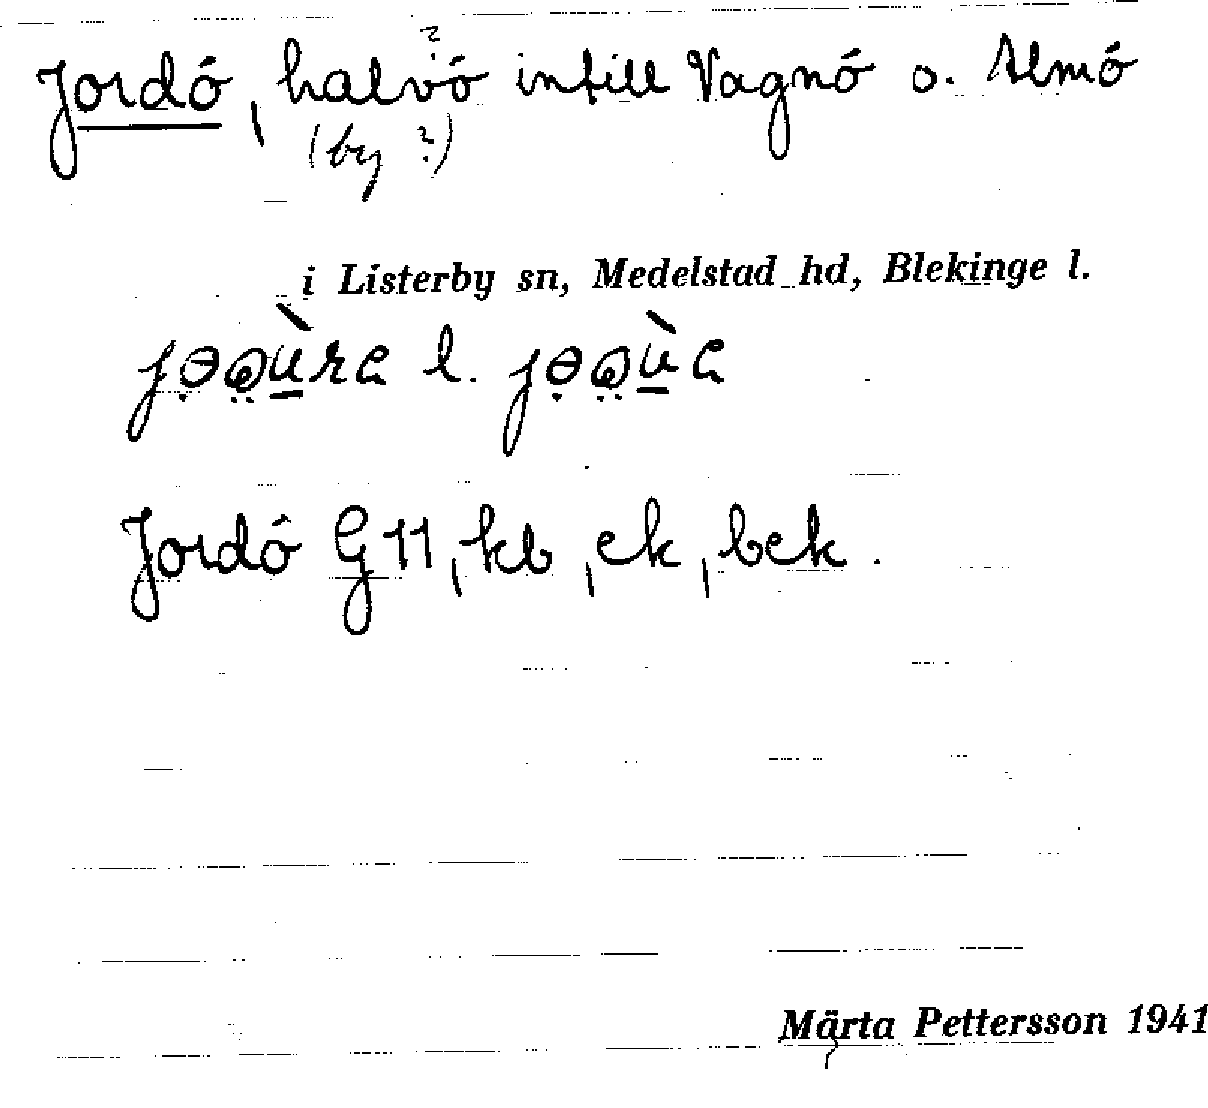 Jordö, halvö ? intill Vagnö o. Almö
(by ?)
i Listerby sn, Medelstad hd, Blekinge l.
Jordö G 11, kb, ek, bek.
Märta Pettersson 1941